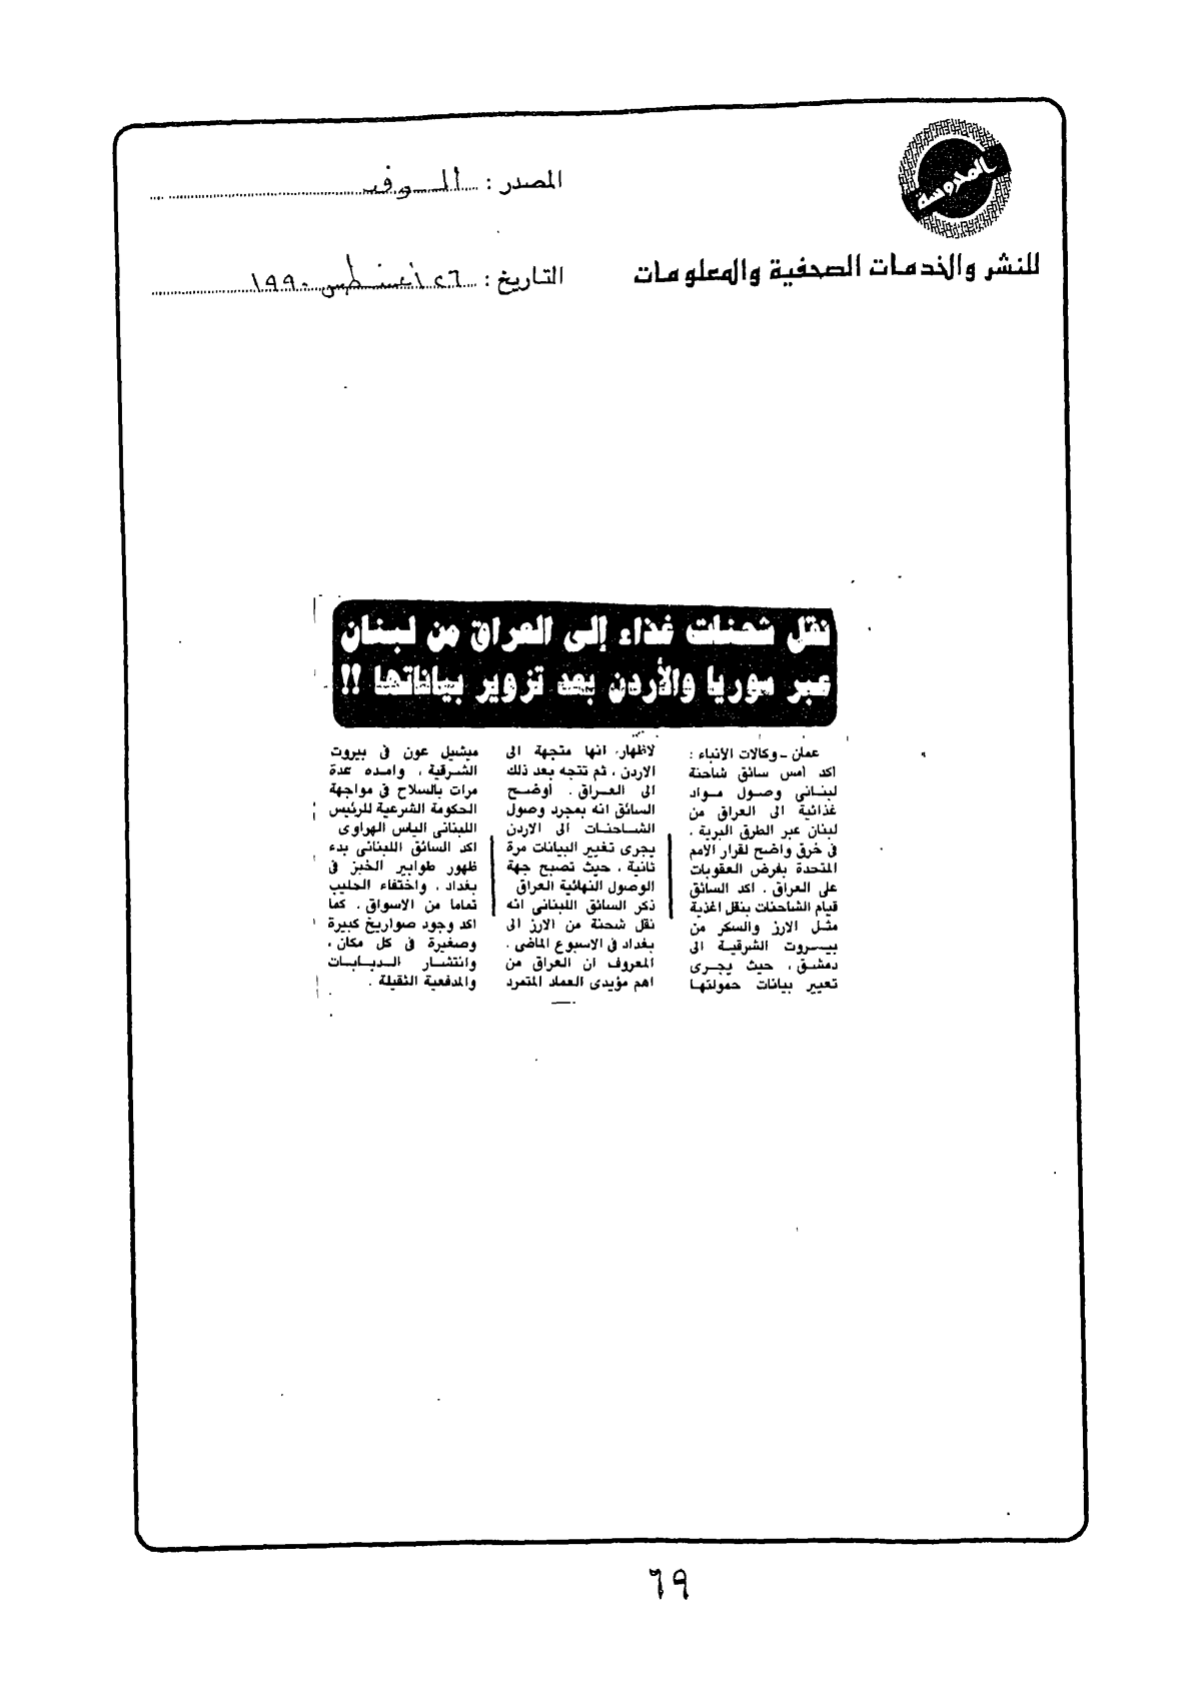 المحروسة
للنشر والخدمات الصحفية والمعلومات
المصدر : الوفد
التاريخ : ٢٦ أغسطس ١٩٩٠
نقل شحنات غذاء إلى العراق من لبنان
عبر سوريا والأردن بعد تزوير بياناتها !!
عمان - وكالات الانباء :
اكد امس سائق شاحنة
لبنانى وصول مواد
غذائية الى العراق من
لبنان عبر الطرق البرية .
فى خرق واضح لقرار الامم
المتحدة بفرض العقوبات
على العراق . اكد السائق
قيام الشاحنات بنقل اغذية
مثل الارز والسكر من
بيروت الشرقية الى
دمشق ، حيث يجرى
تغيير بيانات حمولتها
لاظهار انها متجهة الى
الاردن ، ثم تتجه بعد ذلك
الى العراق . أوضح
السائق انه بمجرد وصول
الشاحنات الى الاردن
يجرى تغيير البيانات مرة
ثانية ، حيث تصبح جهة
الوصول النهائية العراق
ذكر السائق اللبنانى انه
نقل شحنة من الارز الى
بغداد فى الاسبوع الماضى .
المعروف ان العراق من
اهم مؤيدى العماد المتمرد
ميشيل عون فى بيروت
الشرقية ، وامده عدة
مرات بالسلاح فى مواجهة
الحكومة الشرعية للرئيس
اللبنانى الياس الهراوى
اكد السائق اللبنانى بدء
ظهور طوابير الخبز فى
بغداد ، واختفاء الحليب
تماما من الاسواق . كما
اكد وجود صواريخ كبيرة
وصغيرة فى كل مكان ،
وانتشار الدبابات
والمدفعية الثقيلة .
٦٩